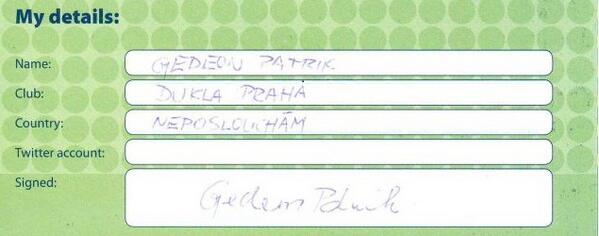 My details:
Name: GEDEON PATRIK
Club: DUKLA PRAHA
Country: NEPOSLOUCHÁM
Twitter account:
Signed: Gedeon Patrik